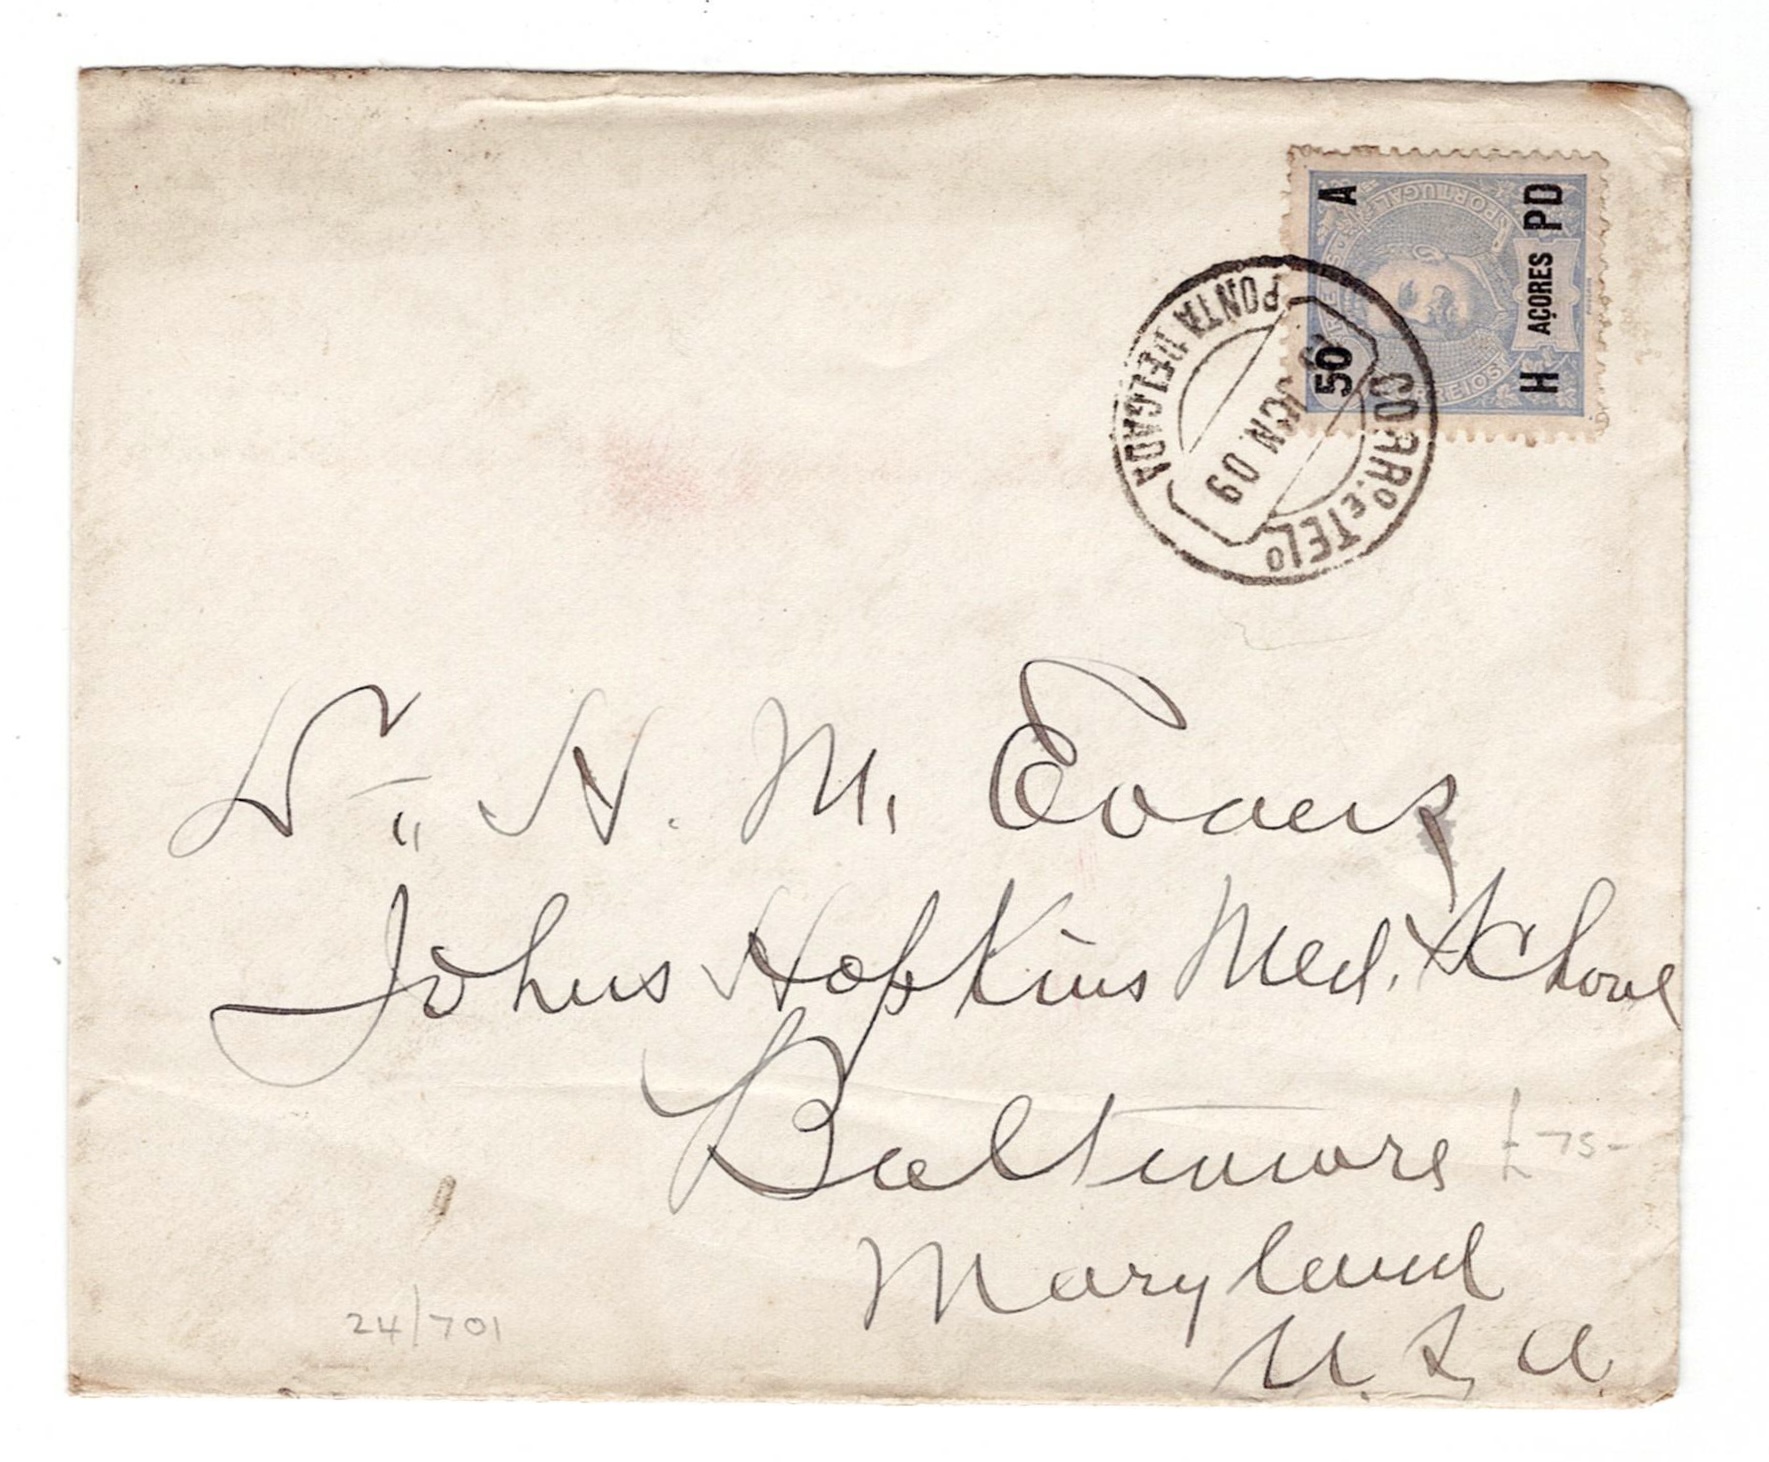 A
PD
AÇORES
H
50
PORTUGAL
CORREIOS
PONTA DELGADA
JUN 09
CORR.º E TEL.º
Dr. H. M. Evans
Johns Hopkins Med. School
Baltimore
Maryland
U. S. A.
£75-
24/701